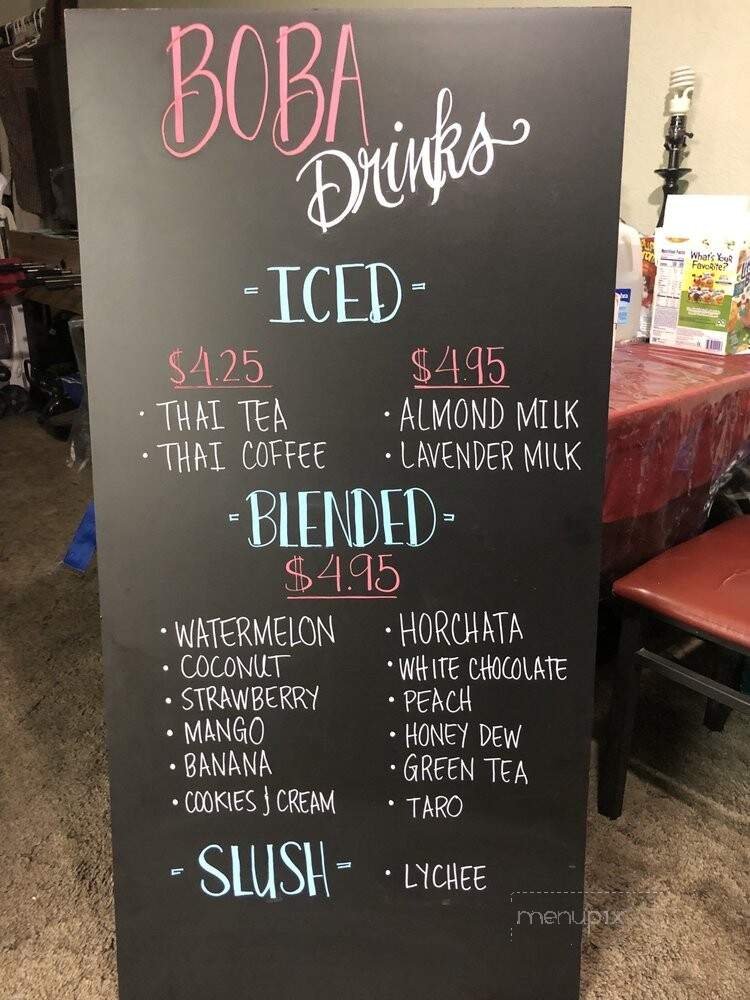 BOBA
Drinks
- ICED -
$4.25
· THAI TEA
· THAI COFFEE
$4.95
· ALMOND MILK
· LAVENDER MILK
- BLENDED -
$4.95
· WATERMELON
· COCONUT
· STRAWBERRY
· MANGO
· BANANA
· COOKIES & CREAM
· HORCHATA
· WHITE CHOCOLATE
· PEACH
· HONEY DEW
· GREEN TEA
· TARO
- SLUSH -
· LYCHEE
What's Your
Favorite?
Nutrition Facts
menupix